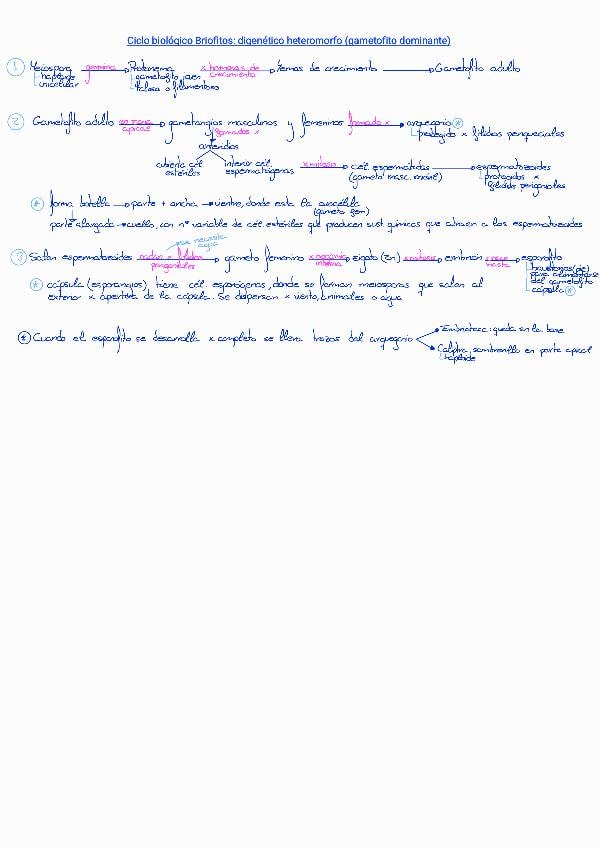 Ciclo biológico Briofitos: digenético heteromorfo (gametofito dominante)
1 Meiospora germina Protonema x hormonas de crecimiento Yemas de crecimiento Gametofito adulto
haploide gametofito joven
unicelular talosa o filamentosa
2 Gametofito adulto en zona apical gametangios masculinos y femeninos formado x arquegonio *
formados x protegido x filidios periqueciales
anteridios
cubierta cél. estériles interior cél. espermatógenas x mitosis cél. espermátidas espermatozoides
(gameto masc. móvil) protegidos x filidios perigoniales
* forma botella parte + ancha vientre, donde esta la ovocélula
(gameto fem)
parte alargada cuello, con nº variable de cél. estériles que producen sust químicas que atraen a los espermatozoides
se necesita agua
3 Salen espermatozoides nadan x filidios perigoniales gameto femenino x ovogamia interna zigoto (2n) x mitosis embrión crece hasta esporofito
haustorios (pie) para alimentarse del gametofito
cápsula *
* cápsula (esporangios) tiene cél. esporógenas, donde se forman meiosporas que salen al
exterior x apertura de la cápsula. Se dispersan x viento, animales o agua
* Cuando el esporofito se desarrolla x completo se lleva trozos del arquegonio
Embrioteca: queda en la base
Caliptra, sombrerillo en parte apical
haploide